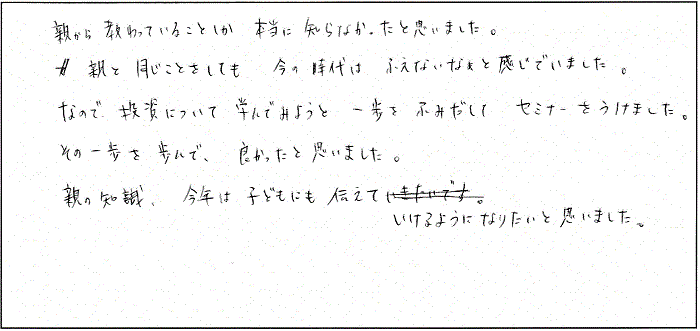 親から教わっていることしか 本当に知らなかったと思いました。
親と同じことをしても 今の時代は ふえないなぁと感じでいました。
なので、投資について 学んでみようと 一歩を ふみだして セミナーをうけました。
その一歩を歩んで、 良かったと思いました。
親の知識、 今年は 子どもにも 伝えて
いけるようになりたいと思いました。